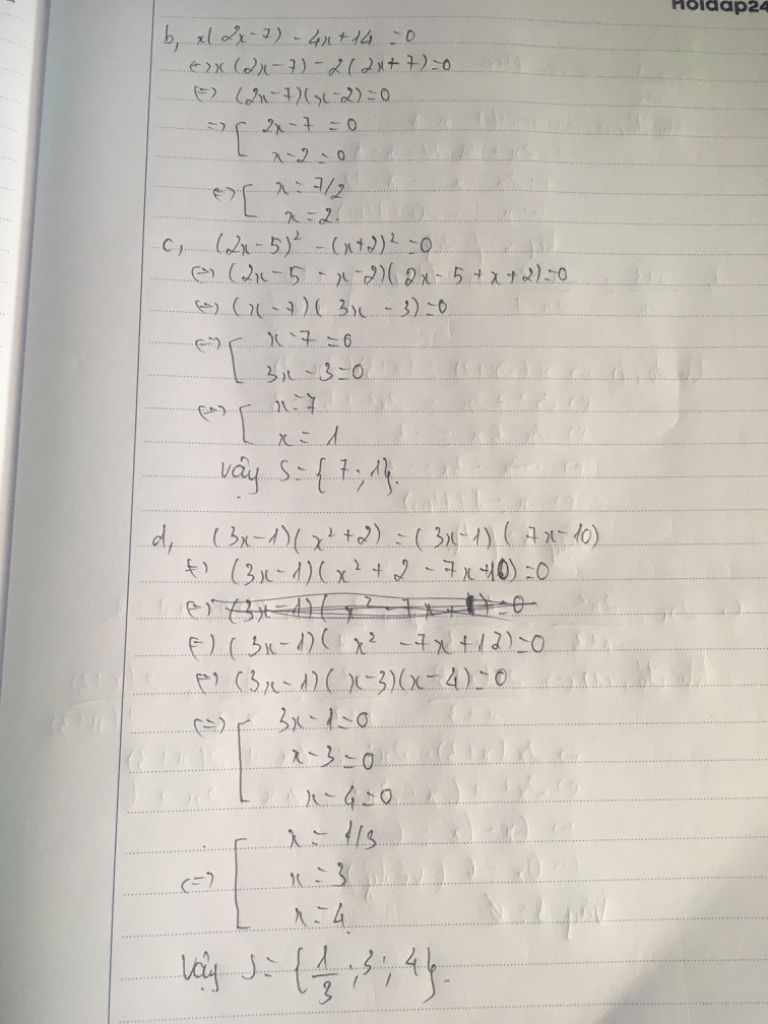 Hoidap24
b, x(2x-7) - 4x+14 = 0
<=> x(2x-7) - 2(2x+7)=0
<=> (2x-7)(x-2)=0
=> [ 2x-7 = 0
x-2=0
<=> [ x = 7/2
x = 2.
c, (2x-5)² - (x+2)² = 0
<=> (2x-5 - x-2)(2x-5+x+2)=0
<=> (x-7)(3x-3)=0
<=> [ x-7=0
3x-3=0
<=> [ x=7
x = 1
Vậy S={7;1}.
d, (3x-1)(x²+2) = (3x-1)(7x-10)
<=> (3x-1)(x²+2-7x+10)=0
<=> (3x-1)(x²-7x+12)=0
<=> (3x-1)(x-3)(x-4)=0
<=> [ 3x-1=0
x-3=0
x-4=0
<=> [ x = 1/3
x = 3
x=4.
Vậy S= {1/3;3;4}.